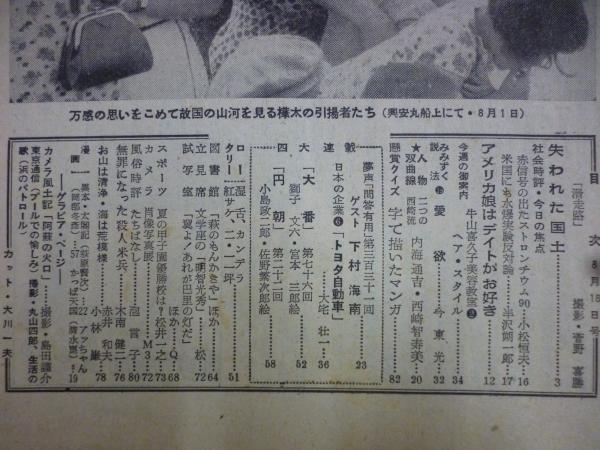 万感の思いをこめて故国の山河を見る樺太の引揚者たち(興安丸船上にて・8月1日)
目次 8月18日号
「滑走路」 撮影・菅野喜勝
失われた国土 3
社会時評・今日の焦点
赤信号の出たストロンチウム90 小松恒夫 16
米国にも水爆実験反対論 半沢朗一郎 17
アメリカ娘はデイトがお好き 12
今週の御案内 34
牛山喜久子美容教室② ヘア・スタイル
みみずく説法⑮ 愛欲 今東光 32
★人物双曲線 二つの西崎流 内海通吉・西崎智寿美 20
懸賞クイズ 字で描いたマンガ 82
連載
夢声「問答有用」第三百三十一回 ゲスト 下村海南 23
日本の企業⑥「トヨタ自動車」 大宅壮一 36
大「大番」第七十六回 獅子文六・宮本三郎絵 52
四「円朝」第二十二回 小島政二郎・佐野繁次郎絵 58
ロータリー 湿舌、カンテラ 紅サケ、二・一一坪 51
図書館 「萩のもんかきや」ほか 64
立見席 文学座の「明智光秀」 松 72
試写室 「夏よ!あれが巴里の灯だ」ほか Q 68
スポーツ 夏の甲子園優勝校は? 松井一之 73
カメラ 肖像写真展 M3 72
風俗時評 たちばなし 泡言子 80
無罪になった殺人米兵 木南健二 76
お山は清浄・海は芋模様 赤井和夫 小林巌 78
漫画
—グラビア・ページ—
カメラ風土記「阿蘇の火口」 撮影・島田謹介
東京通信(プールでの愉しみ) 撮影・丸山四郎、生活の歌(浜のパトロール)
カット・大川一夫